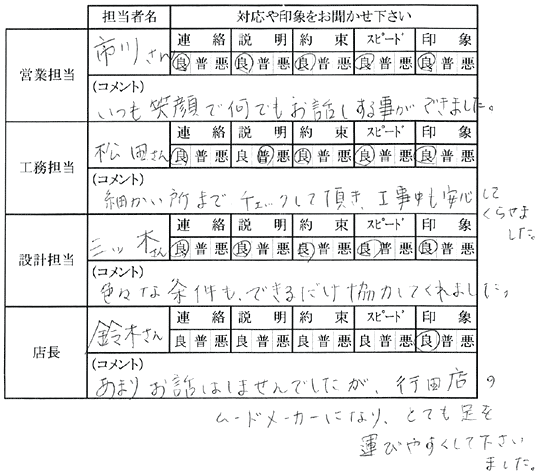 担当者名 対応や印象をお聞かせ下さい
営業担当 市川さん 連絡 説明 約束 スピード 印象
良 普 悪 良 普 悪 良 普 悪 良 普 悪 良 普 悪
(コメント)
いつも笑顔で何でもお話しする事ができました。
工務担当 松田さん 連絡 説明 約束 スピード 印象
良 普 悪 良 普 悪 良 普 悪 良 普 悪 良 普 悪
(コメント)
細かい所までチェックして頂き、工事中も安心して
くらせま
した。
設計担当 三ッ木さん 連絡 説明 約束 スピード 印象
良 普 悪 良 普 悪 良 普 悪 良 普 悪 良 普 悪
(コメント)
色々な条件も、できるだけ協力してくれました。
店長 鈴木さん 連絡 説明 約束 スピード 印象
良 普 悪 良 普 悪 良 普 悪 良 普 悪 良 普 悪
(コメント)
あまりお話はしませんでしたが、行田店の
ムードメーカーになり、とても足を
運びやすくして下さい
ました。